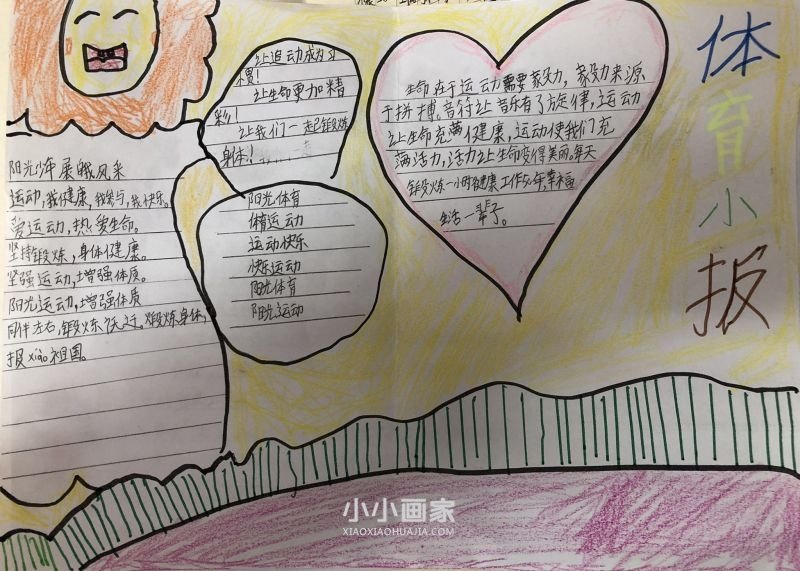 体育小报
阳光少年展我风采
运动,我健康,我参与,我快乐。
爱运动,热爱生命。
坚持锻炼,身体健康。
坚强运动,增强体质。
阳光运动,增强体质
同伴左右,锻炼 锻炼身体,
报xiào祖国。
让运动成为习
惯!
让生命更加精
彩!
让我们一起锻炼
身体!
阳光体育
体育运动
运动快乐
快乐运动
阳光体育
阳光运动
生命在于运动需要
于拼搏。音符让音乐有了旋律,运动
让生命充满健康,运动使我们充
满活力,活力让生命变得美丽。每天
锻炼一小时健康工作 年,幸福
生活一辈子。
小小画家
XIAOXIAOHUAJIA.COM